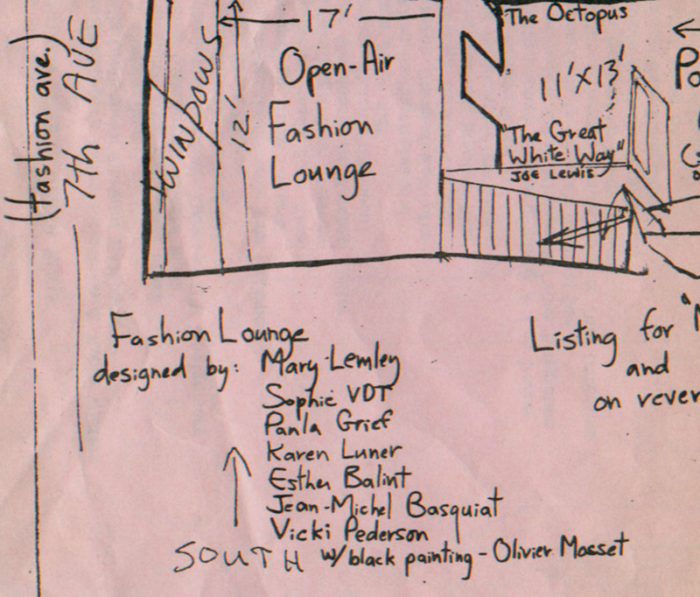 (fashion ave.)
7th AVE
WINDOWS
17'
12'
Open-Air
Fashion
Lounge
The Octopus
11'X13'
"The Great
White Way"
JOE LEWIS
Fashion Lounge
designed by: Mary Lemley
Sophie VDT
Paula Grief
Karen Luner
Esther Balint
Jean-Michel Basquiat
Vicki Pederson
SOUTH w/black painting - Olivier Mosset
Listing for
and
on rever